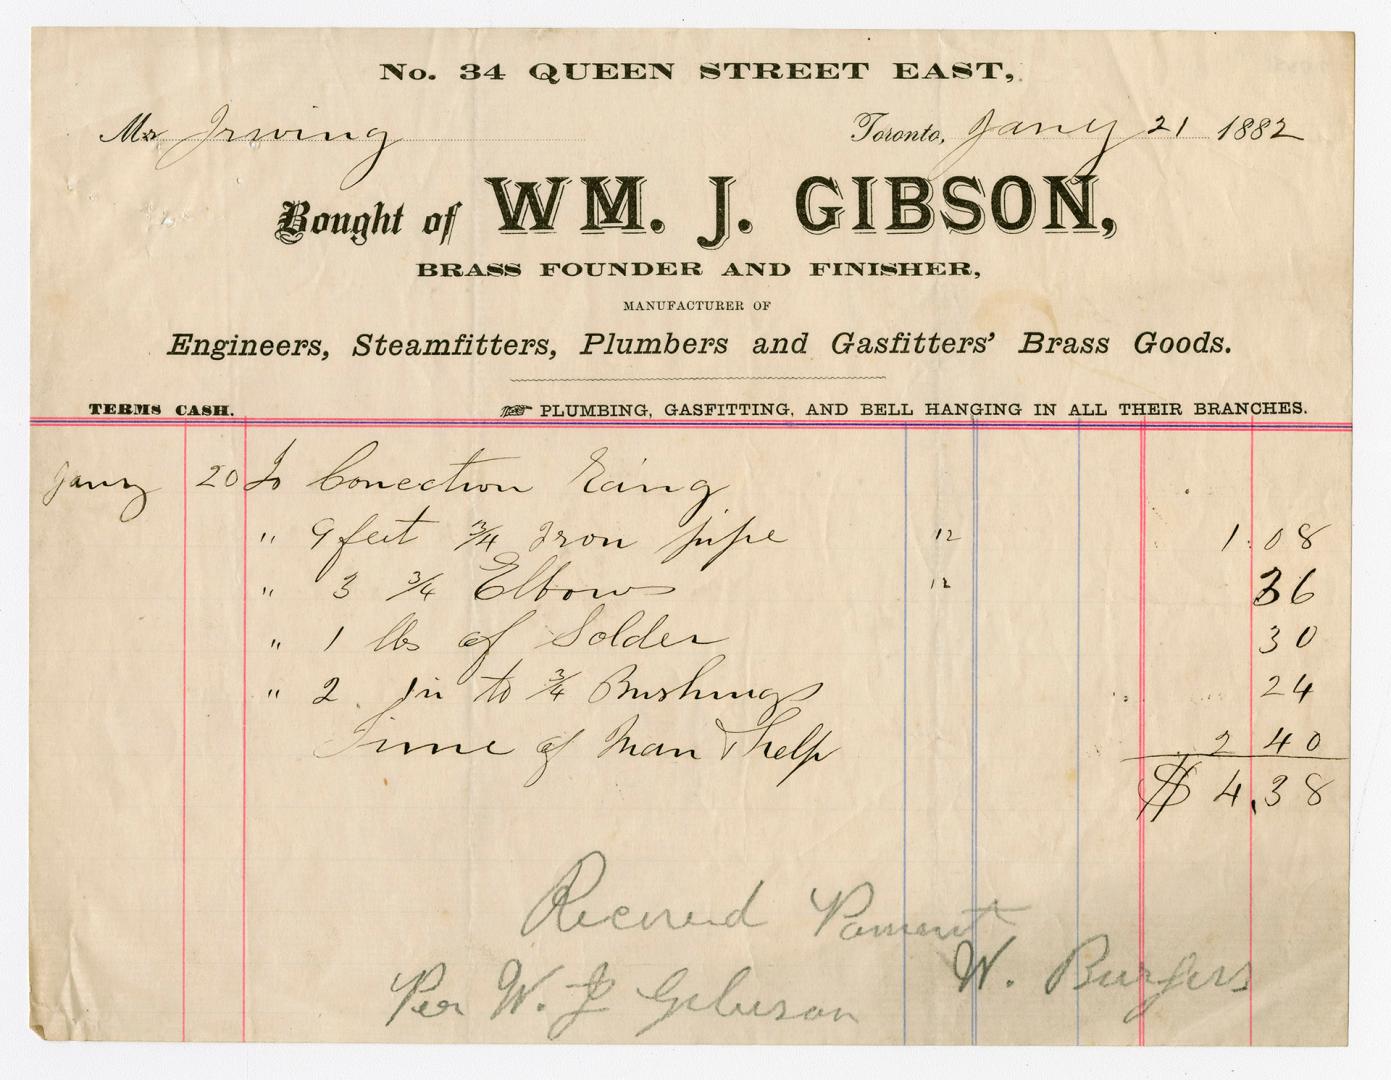 No. 34 QUEEN STREET EAST,
Mr Irwing Toronto, Jany 21 1882
Bought of WM. J. GIBSON,
BRASS FOUNDER AND FINISHER,
MANUFACTURER OF
Engineers, Steamfitters, Plumbers and Gasfitters' Brass Goods.
TERMS CASH. PLUMBING, GASFITTING, AND BELL HANGING IN ALL THEIR BRANCHES.
Jany 20 To Conection
" 9 feet 3/4 Iron pipe 12 1.08
" 3 3/4 Elbows 12 36
" 1 lbs of Solder 30
" 2 1in to 3/4 Bushings 24
Time of Man & help 2 40
$ 4.38
Recieved Pament
W. Burgess
Per W. J Gibson